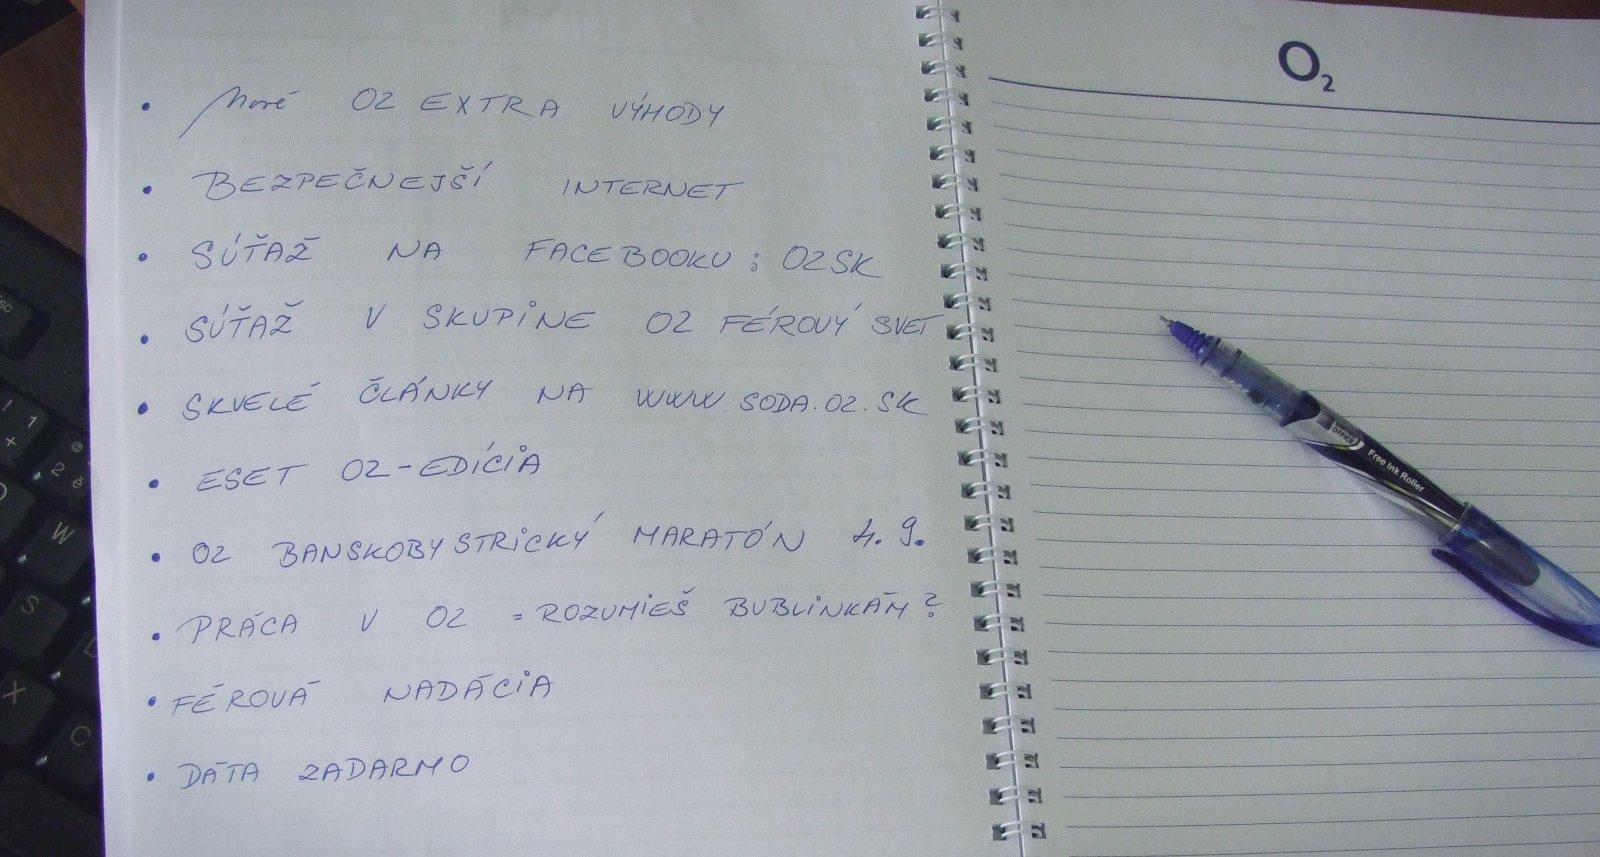 • Nové O2 EXTRA VÝHODY
• BEZPEČNEJŠÍ INTERNET
• SÚŤAŽ NA FACEBOOKU: O2SK
• SÚŤAŽ V SKUPINE O2 FÉROVÝ SVET
• SKVELÉ ČLÁNKY NA WWW.SODA.O2.SK
• ESET O2-EDÍCIA
• O2 BANSKOBYSTRICKÝ MARATÓN 4.9.
• PRÁCA V O2 = ROZUMIEŠ BUBLINKÁM?
• FÉROVÁ NADÁCIA
• DÁTA ZADARMO
O2
UNITED OFFICE
Free Ink Roller
1
+
2
W
S
X
C